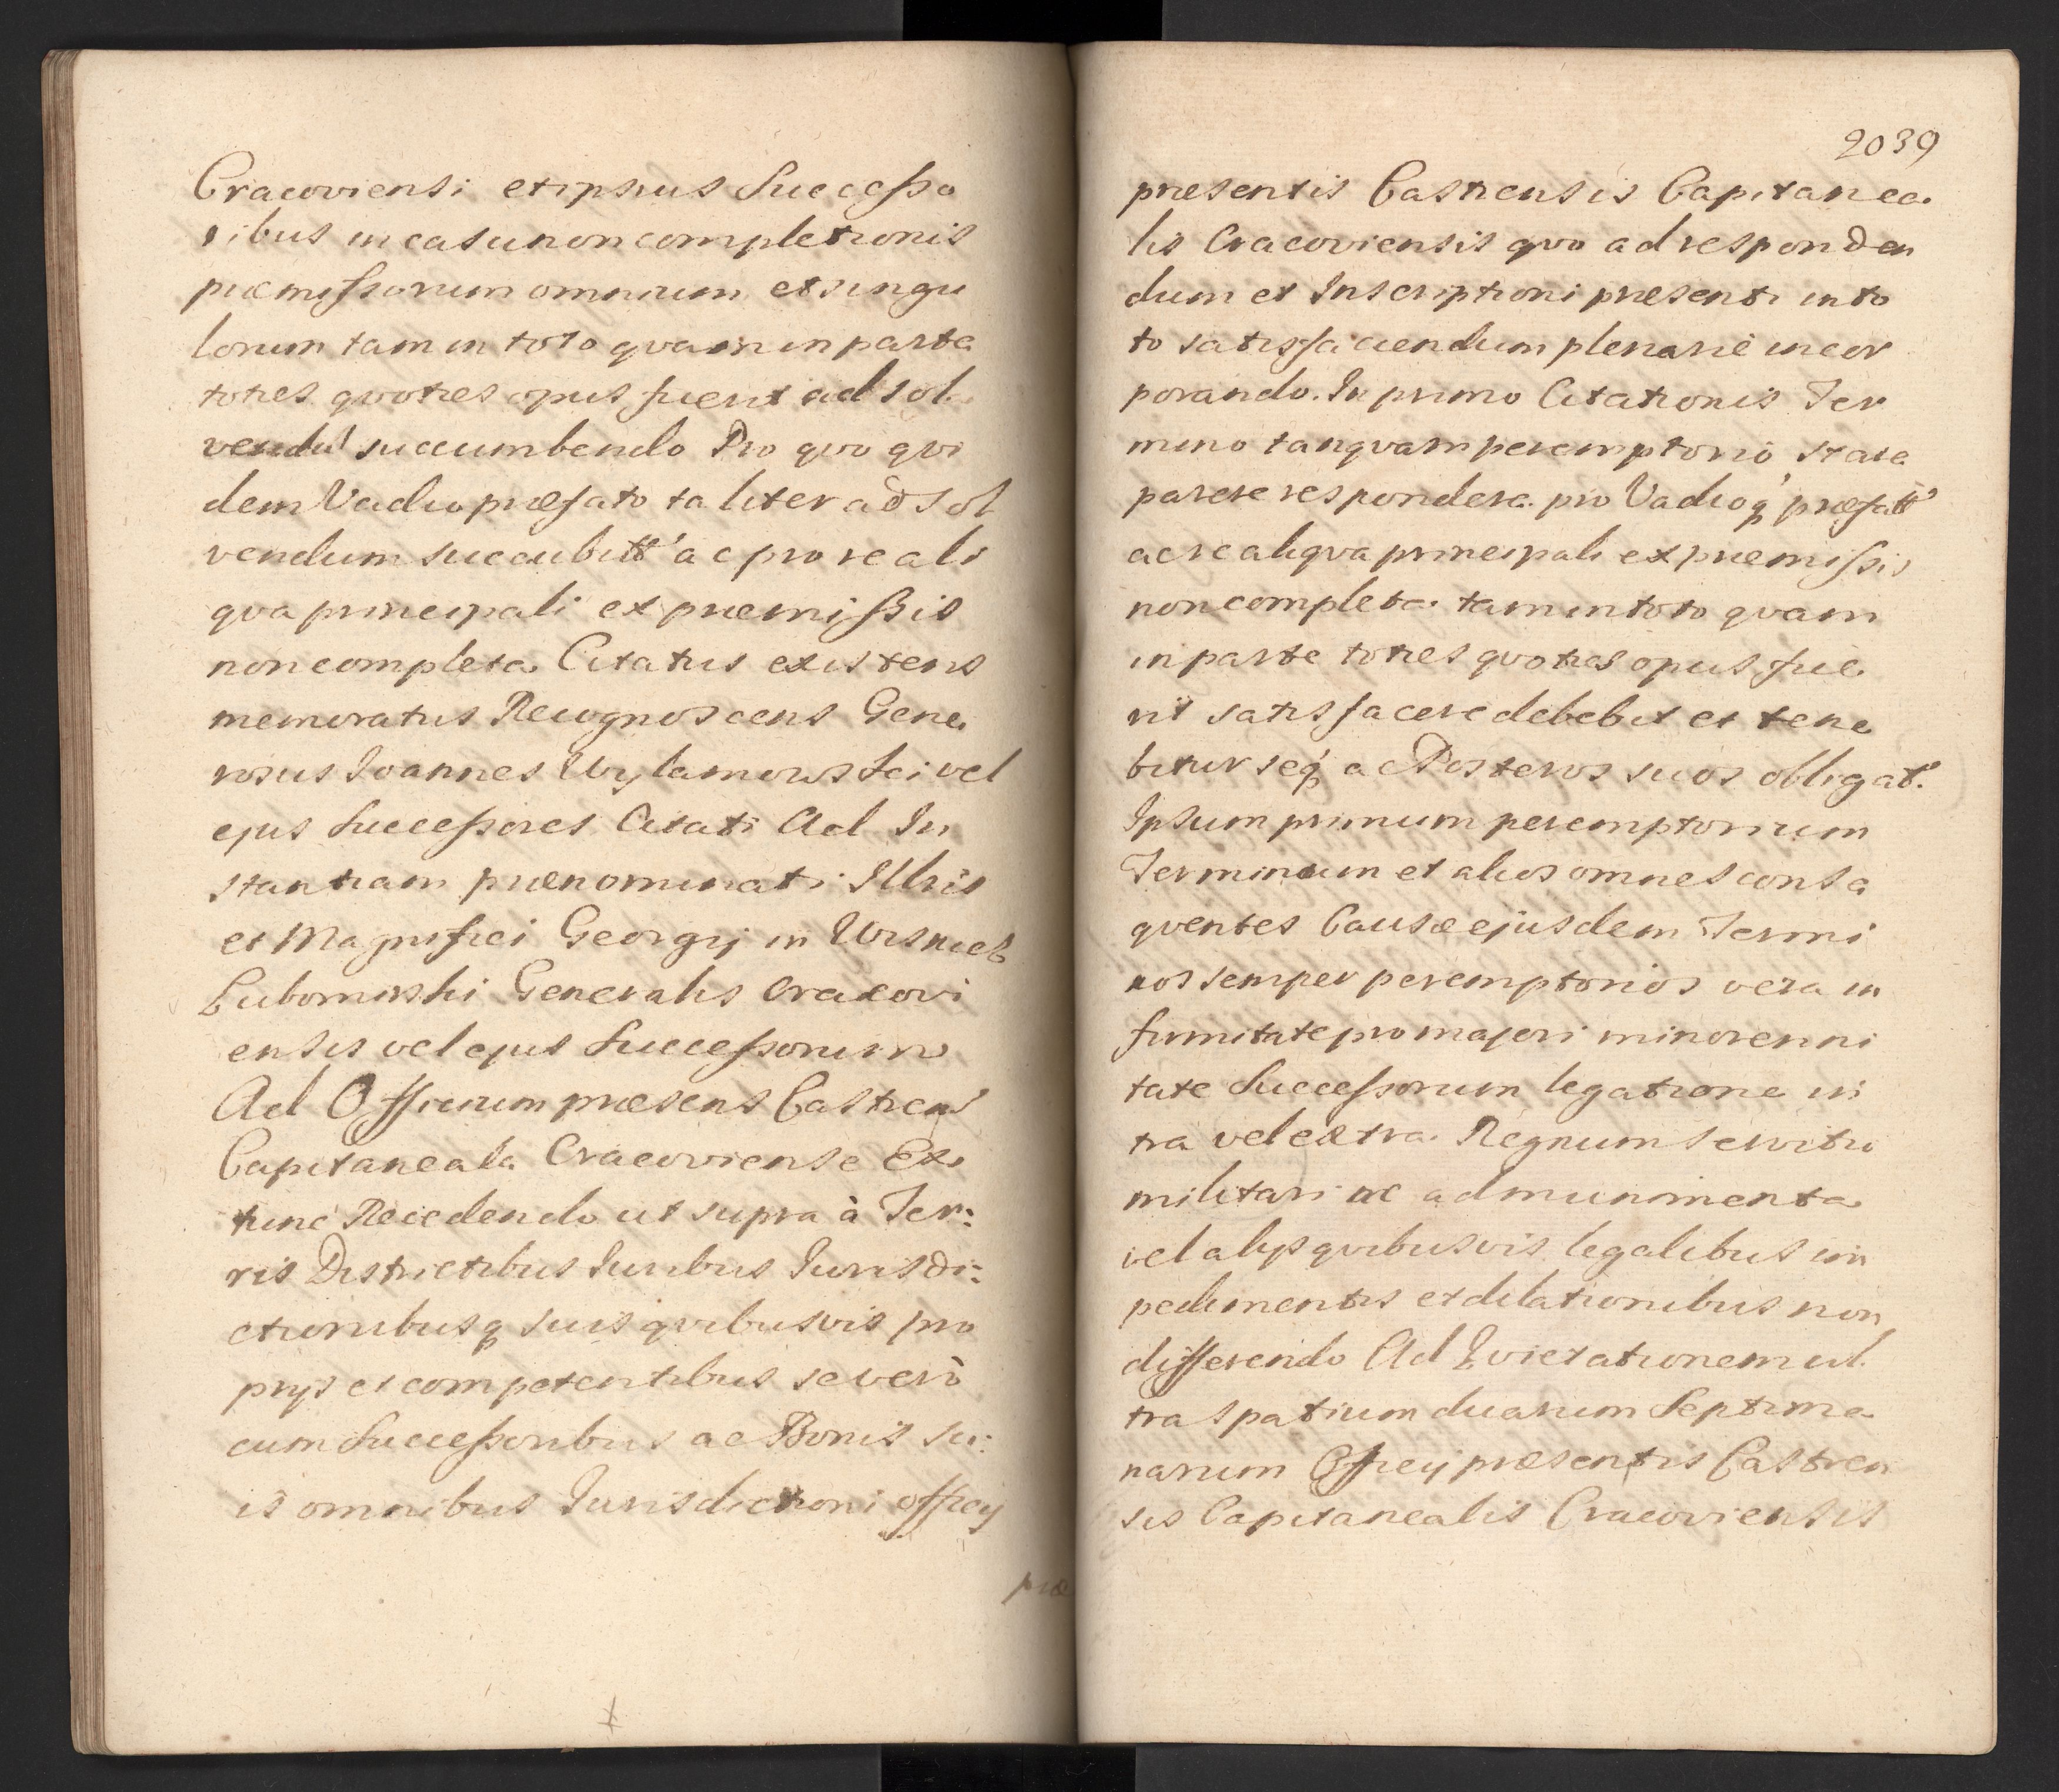 Cracoviensi et ipsius Successo
ribus in casu non completionis
præmissorum omnium et singu
lorum tam in toto qvam in parte
toties qvoties opus fuerit ad sol
vend' succumbendo Pro qvo qvi
dem Vadio præfato taliter ad sol
vendum succubitt' ac pro re ali
qva principali ex præmissis
non completa Citatus existens
memoratus Recognoscens Gene
rosus Joannes Wylamowski vel
ejus Successores Citati Ad In
stantiam prænominati Illris
et Magnifici Georgij in Wisnicz
Lubomirski Generalis Cracovi
ensis vel ejus Successorum
Ad Officium præsens Castren'
Capitaneale Cracoviense Ex
tunc Recedendo ut supra à Ter:
ris Districtibus Iuribus Iurisdi:
ctionibusq suis qvibusvis pro
prijs et competentibus se verò
cum Successoribus ac Bonis su:
is omnibus Iurisdictioni officij
præ
2039
præsentis Castrensis Capitanea
lis Cracoviensis qvo ad responden
dum et Inscriptioni præsenti in to
to satisfaciendum plenariè incor
porando. In primo Citationis Ter
mino tanqvam peremptorio stare
parere respondere pro Vadioq' præfatt'
ac re aliqva principali ex præmissis
non completa tam in toto qvam
in parte toties qvoties opus fue
rit satisfacere debebit et tene
bitur seq' ac Posteros suos obligat.
Ipsum primum peremptorium
Terminum et alios omnes conse
qventes Causæ ejusdem Termi
nos semper peremptorios vera in
firmitate pro majori minorenni
tate Successorum legatione in
tra vel extra Regnum servitio
militari ac ad munimenta
vel alijs qvibusvis legalibus im
pedimentis et dilationibus non
differendo Ad Evictationem ul
tra spatium duarum Septima
narum Officij præsentis Castren
sis Capitanealis Cracoviensis